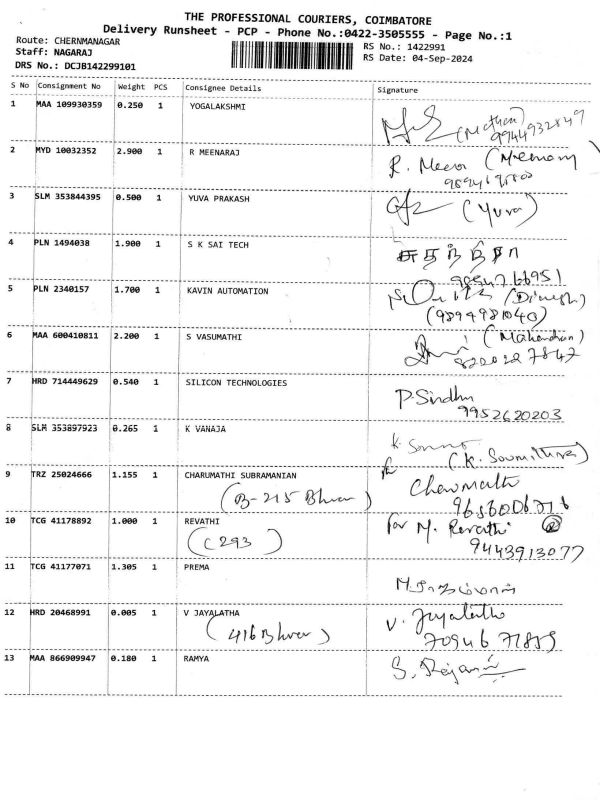 THE PROFESSIONAL COURIERS, COIMBATORE
Delivery Runsheet - PCP - Phone No.:0422-3505555 - Page No.:1
Route: CHERNMANAGAR RS No.: 1422991
Staff: NAGARAJ RS Date: 04-Sep-2024
DRS No.: DCJB142299101
S No Consignment No Weight PCS Consignee Details Signature
1 MAA 109930359 0.250 1 YOGALAKSHMI
(Mothan)
9944932849
2 MYD 10032352 2.900 1 R MEENARAJ
R. Meena
3 SLM 353844395 0.500 1 YUVA PRAKASH
(Yuva)
4 PLN 1494038 1.900 1 S K SAI TECH
5 PLN 2340157 1.700 1 KAVIN AUTOMATION
(Dinesh)
(9894981040)
6 MAA 600410811 2.200 1 S VASUMATHI
(Mahendran)
7 HRD 714449629 0.540 1 SILICON TECHNOLOGIES
P. Sindhu
9952620203
8 SLM 353897923 0.265 1 K VANAJA
(K. Soumithra)
9 TRZ 25024666 1.155 1 CHARUMATHI SUBRAMANIAN
(B-215 Bhvar)
Charumathi
10 TCG 41178892 1.000 1 REVATHI
(C 293)
for M. Revathi
9443913077
11 TCG 41177071 1.305 1 PREMA
12 HRD 20468991 0.005 1 V JAYALATHA
(416 Bhvar)
V. Jayalatha
13 MAA 866909947 0.180 1 RAMYA
S. Rajani